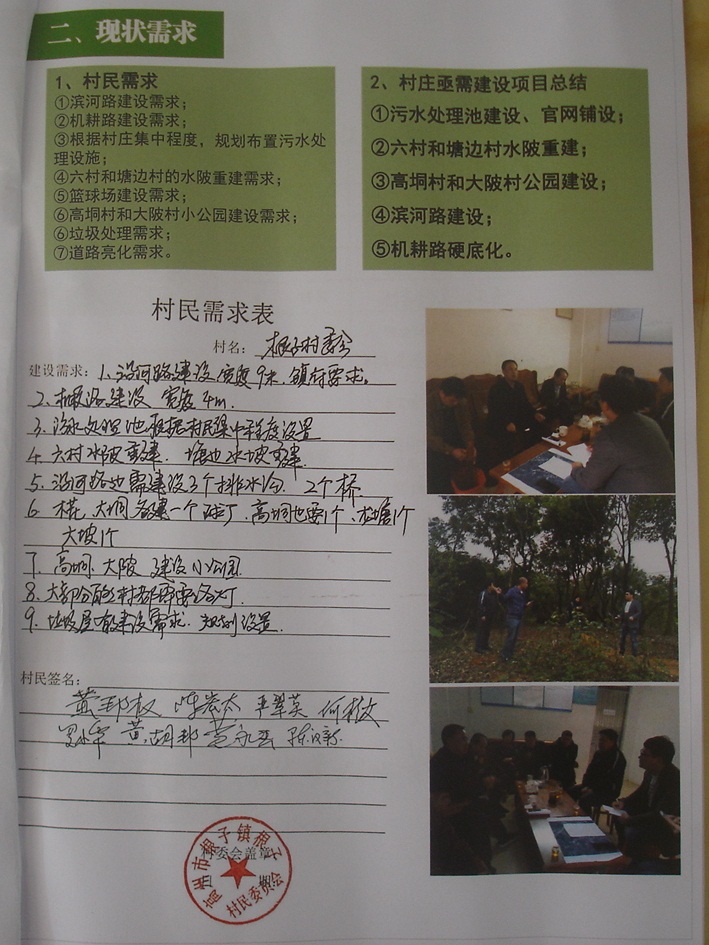 二、现状需求
1、村民需求
①滨河路建设需求；
②机耕路建设需求；
③根据村庄集中程度，规划布置污水处
理设施；
④六村和塘边村的水陂重建需求；
⑤篮球场建设需求；
⑥高垌村和大陂村小公园建设需求；
⑥垃圾处理需求；
⑦道路亮化需求。
2、村庄亟需建设项目总结
①污水处理池建设、官网铺设；
②六村和塘边村水陂重建；
③高垌村和大陂村公园建设；
④滨河路建设；
⑤机耕路硬底化。
村民需求表
村名：根子村委会
建设需求：1、沿河路建设 宽度9米 镇府要求。
2、机耕路建设 宽度4m.
3、污水处理池根据村民集中程度设置
4、六村水陂重建、塘边水坡重建.
5、沿河路边需建设3个排水 2个桥
6、大垌各建一个 高垌也要1个、
大坡1个
7、高垌、大陂 建设小公园
8、大部份的村都需要路灯.
9、垃圾屋 建设需求. 规划设置.
村民签名：
黄邦权 何
黄胡邦
村委会盖章
高州市根子镇根子
村民委员会